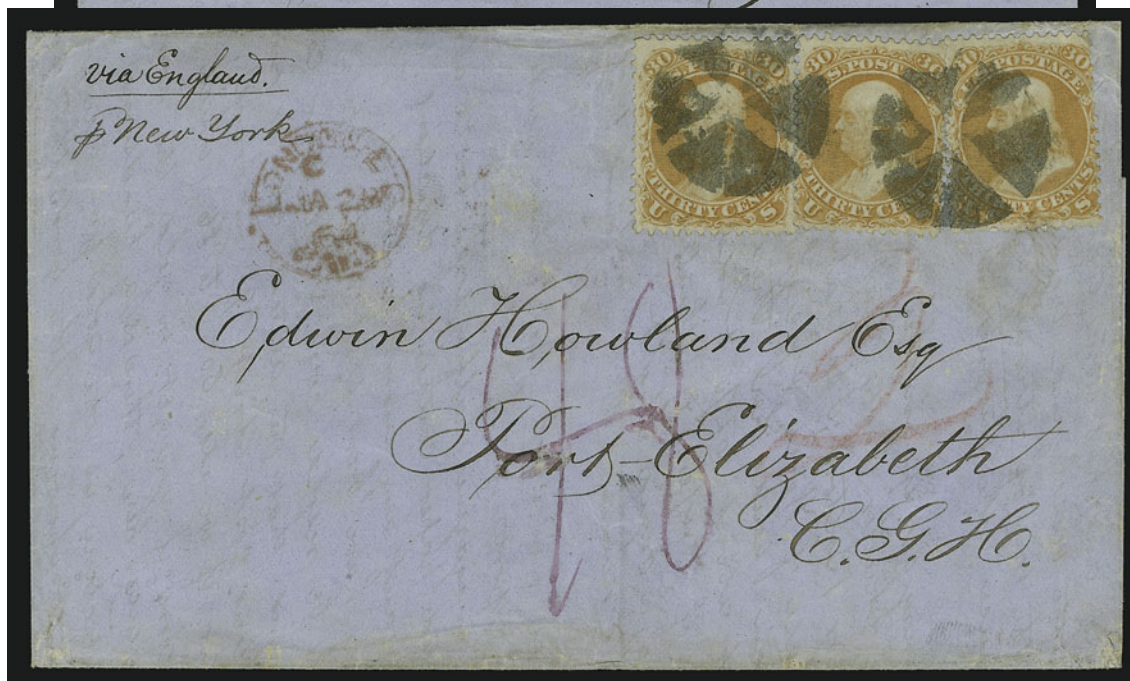 via England.
p New York
30 30
U.S. POSTAGE
THIRTY CENTS
U S
30 30
U.S. POSTAGE
THIRTY CENTS
U S
30 30
U.S. POSTAGE
THIRTY CENTS
U S
Edwin Howland Esq
Port-Elizabeth
C.G.H.
48
2